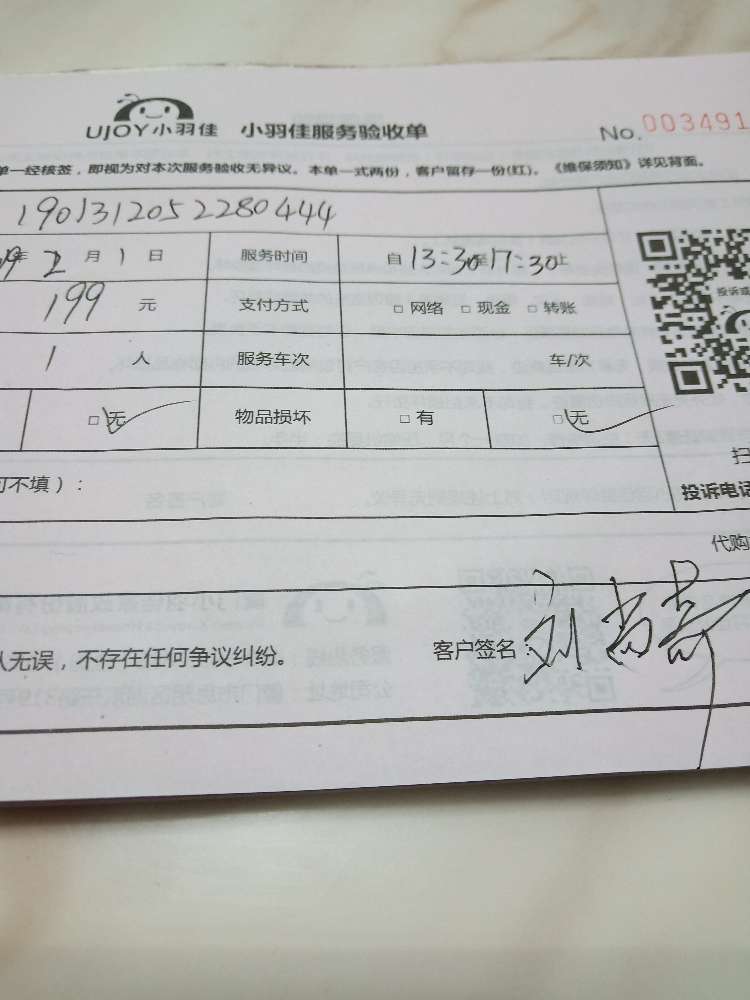 UJOY小羽佳 小羽佳服务验收单 No. 003491
单一经核签，即视为对本次服务验收无异议。本单一式两份，客户留存一份(红)。《维保须知》详见背面。
1901312052280444
19年 2 月 1 日 服务时间 自 13:30至17:30止
199 元 支付方式 □ 网络 □ 现金 □ 转账
1 人 服务车次 车/次
□ 无 物品损坏 □ 有 □ 无
可不填）：
扫
投诉电话
代购
认无误，不存在任何争议纠纷。 客户签名：刘尚